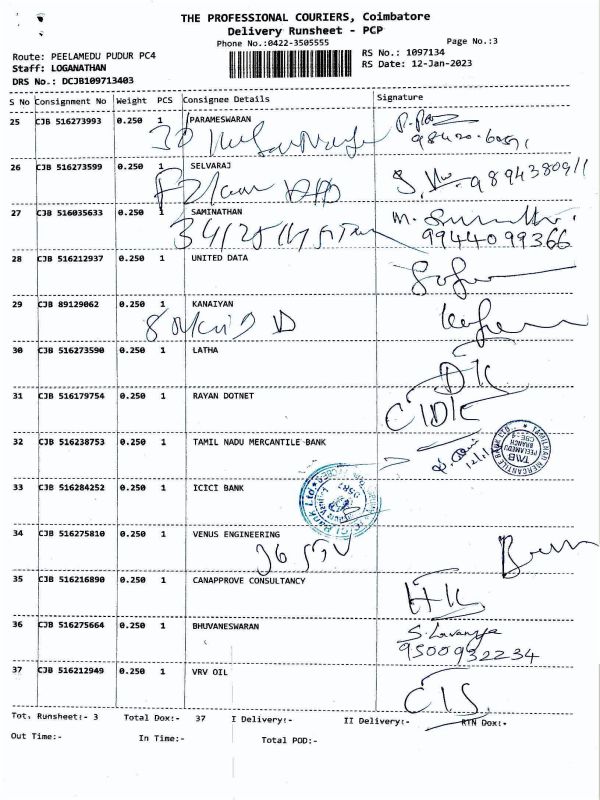 THE PROFESSIONAL COURIERS, Coimbatore
Delivery Runsheet - PCP
Phone No.:0422-3505555
Page No.:3
Route: PEELAMEDU PUDUR PC4
RS No.: 1097134
Staff: LOGANATHAN
RS Date: 12-Jan-2023
DRS No.: DCJB109713403
S No Consignment No Weight PCS Consignee Details Signature
25 CJB 516273993 0.250 1 PARAMESWARAN
26 CJB 516273599 0.250 1 SELVARAJ
9894380911
27 CJB 516035633 0.250 1 SAMINATHAN
9944099366
28 CJB 516212937 0.250 1 UNITED DATA
29 CJB 89129062 0.250 1 KANAIYAN
30 CJB 516273590 0.250 1 LATHA
31 CJB 516179754 0.250 1 RAYAN DOTNET
32 CJB 516238753 0.250 1 TAMIL NADU MERCANTILE BANK
TAMILNAD MERCANTILE BANK LTD.
PEELAMEDU
BRANCH
CBE-4
33 CJB 516284252 0.250 1 ICICI BANK
34 CJB 516275810 0.250 1 VENUS ENGINEERING
35 CJB 516216890 0.250 1 CANAPPROVE CONSULTANCY
36 CJB 516275664 0.250 1 BHUVANESWARAN
S. Lavanya
9500932234
37 CJB 516212949 0.250 1 VRV OIL
Tot. Runsheet:- 3 Total Dox:- 37 I Delivery:- II Delivery:- RTN Dox:-
Out Time:- In Time:- Total POD:-